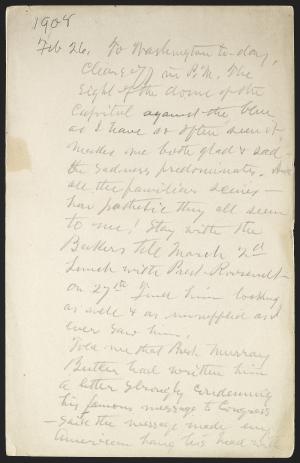 1908
Feb 26. To Washington to-day,
Clears off in P.M. The
sight of the dome of the
Capitol against the blue
as I have so often seen it
makes me both glad & sad –
the sadness predominates. And
all the familiar scenes –
how pathetic they all seem
to me! Stay with the
Bakers till March 2d
Lunch with Prest. Roosevelt –
on 27th Find him looking
as well & as unruffled as I
ever saw him.
Told me that Prest. Murray
Butler had written him
a letter strongly condemning
his famous message to Congress
– said the message made every
American hang his head with